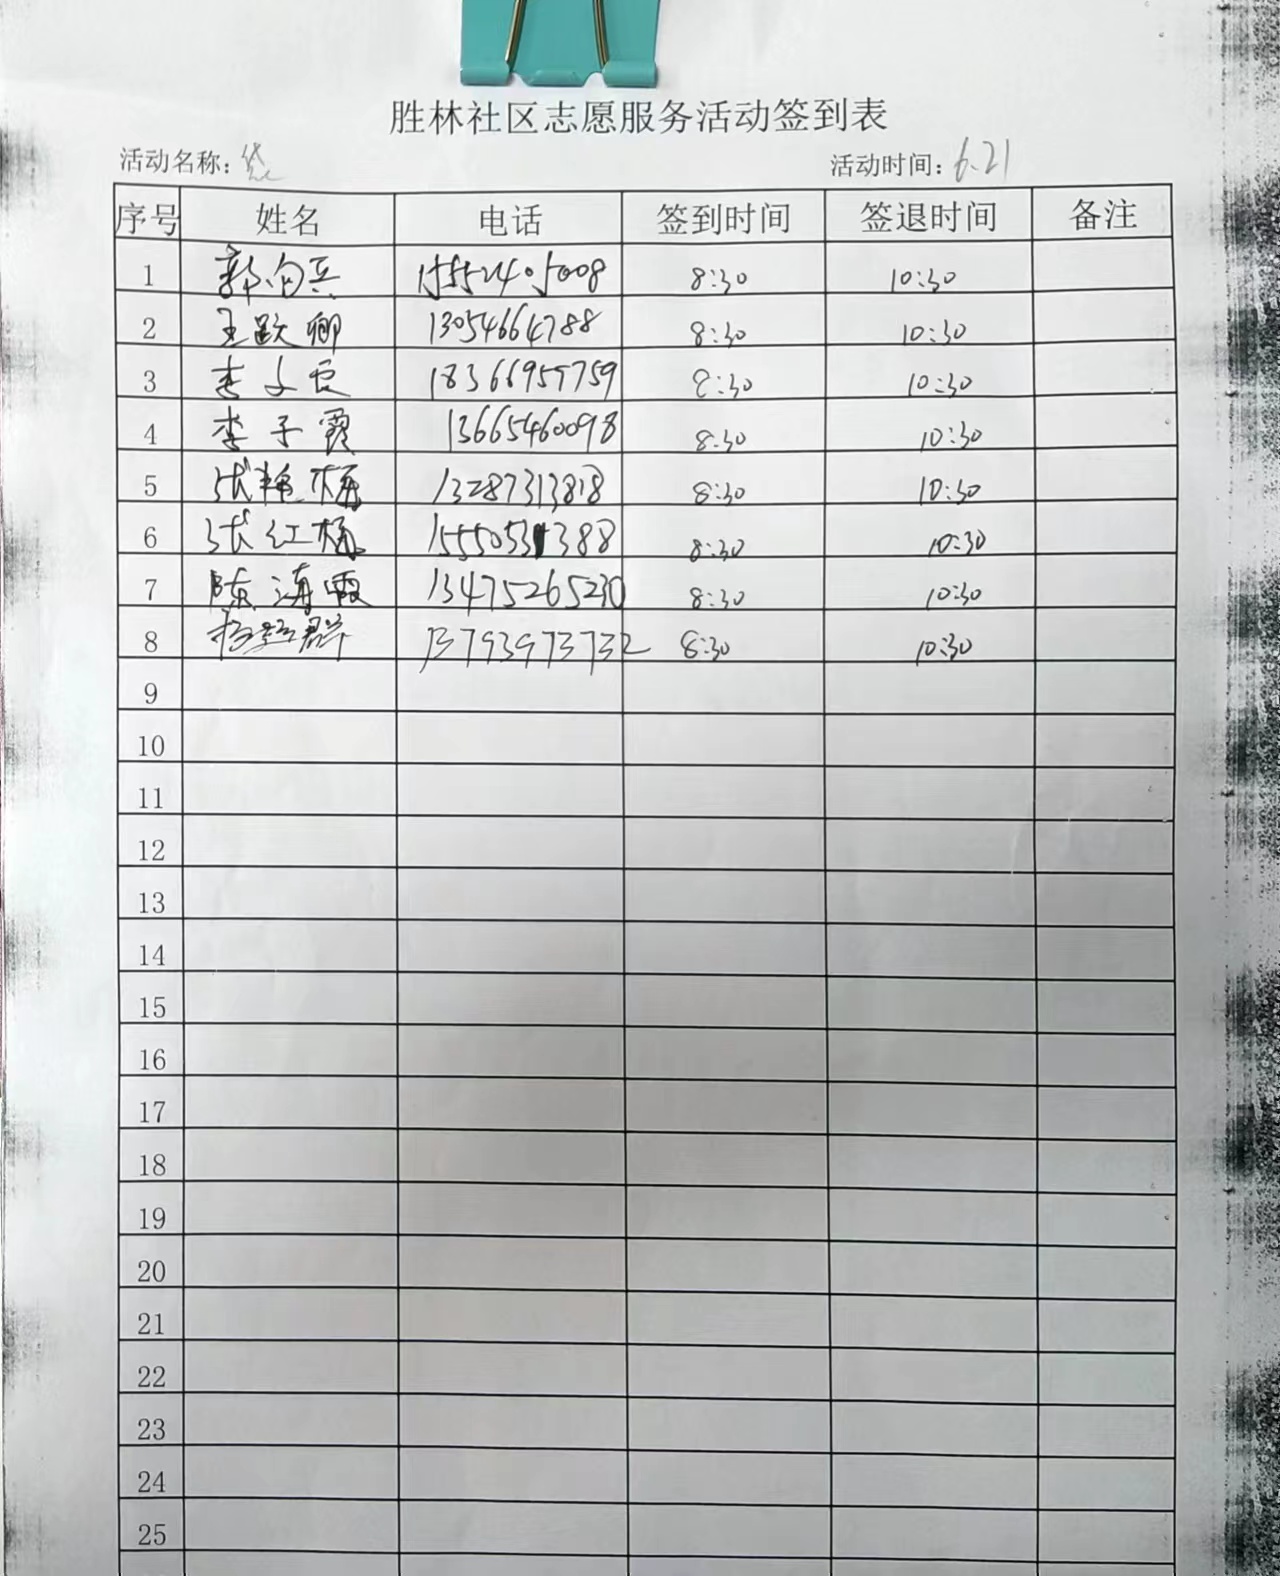 胜林社区志愿服务活动签到表
活动名称： 活动时间：6.21
序号 姓名 电话 签到时间 签退时间 备注
1 郭向兵 15552405008 8:30 10:30
2 王跃卿 13054664788 8:30 10:30
3 李文 18366955759 8:30 10:30
4 李子霞 13665460098 8:30 10:30
5 张艳梅 13287313818 8:30 10:30
6 张红梅 8:30 10:30
7 陈海霞 13475265230 8:30 10:30
8 群 13793973732 8:30 10:30
9
10
11
12
13
14
15
16
17
18
19
20
21
22
23
24
25